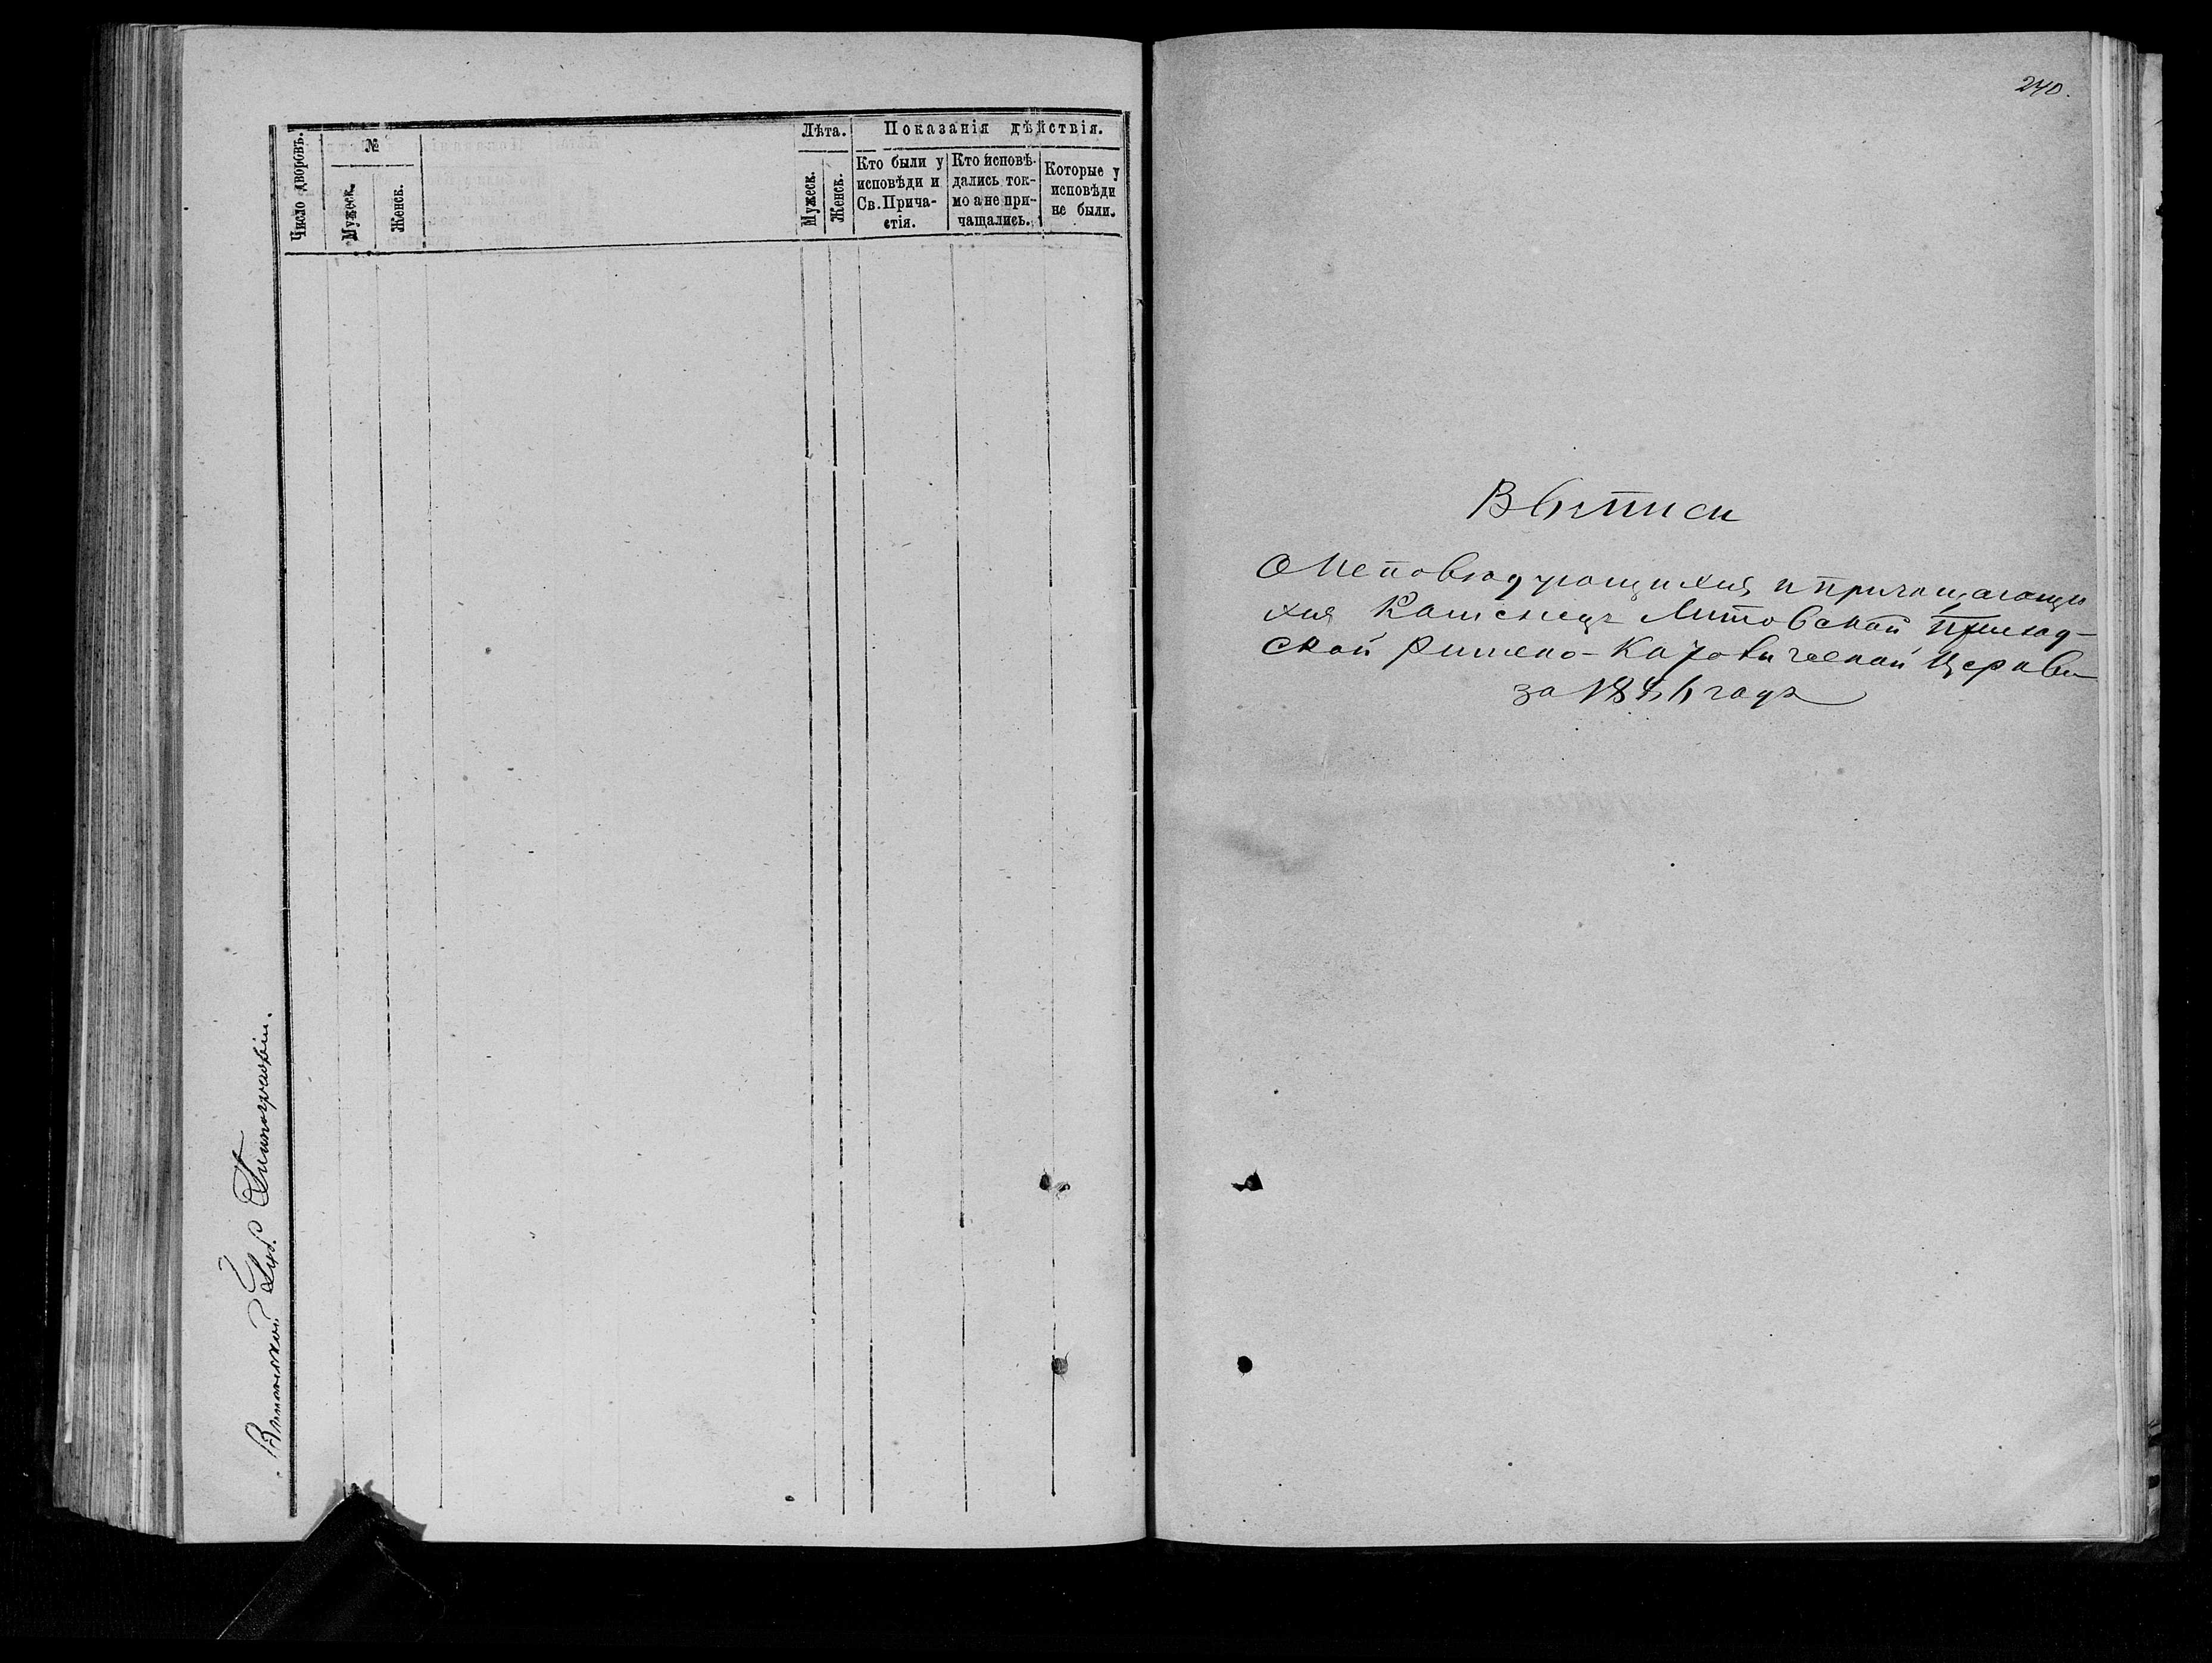 Число дворовъ.
№
Мужеск.
Женск.
Лѣта.
Мужеск.
Женск.
Показанія дѣйствія.
Кто были у
исповѣди и
Св.Прича-
стія.
Кто исповѣ-
дались ток-
мо а не при-
чащались.
Которые у
исповѣди
не были.
Губ. Типографіи.
240.
Выписи
О Исповѣдующихся и причащающи
хся Каменецъ Литовской Приход-
ской Римско-Католической Церкви
за года